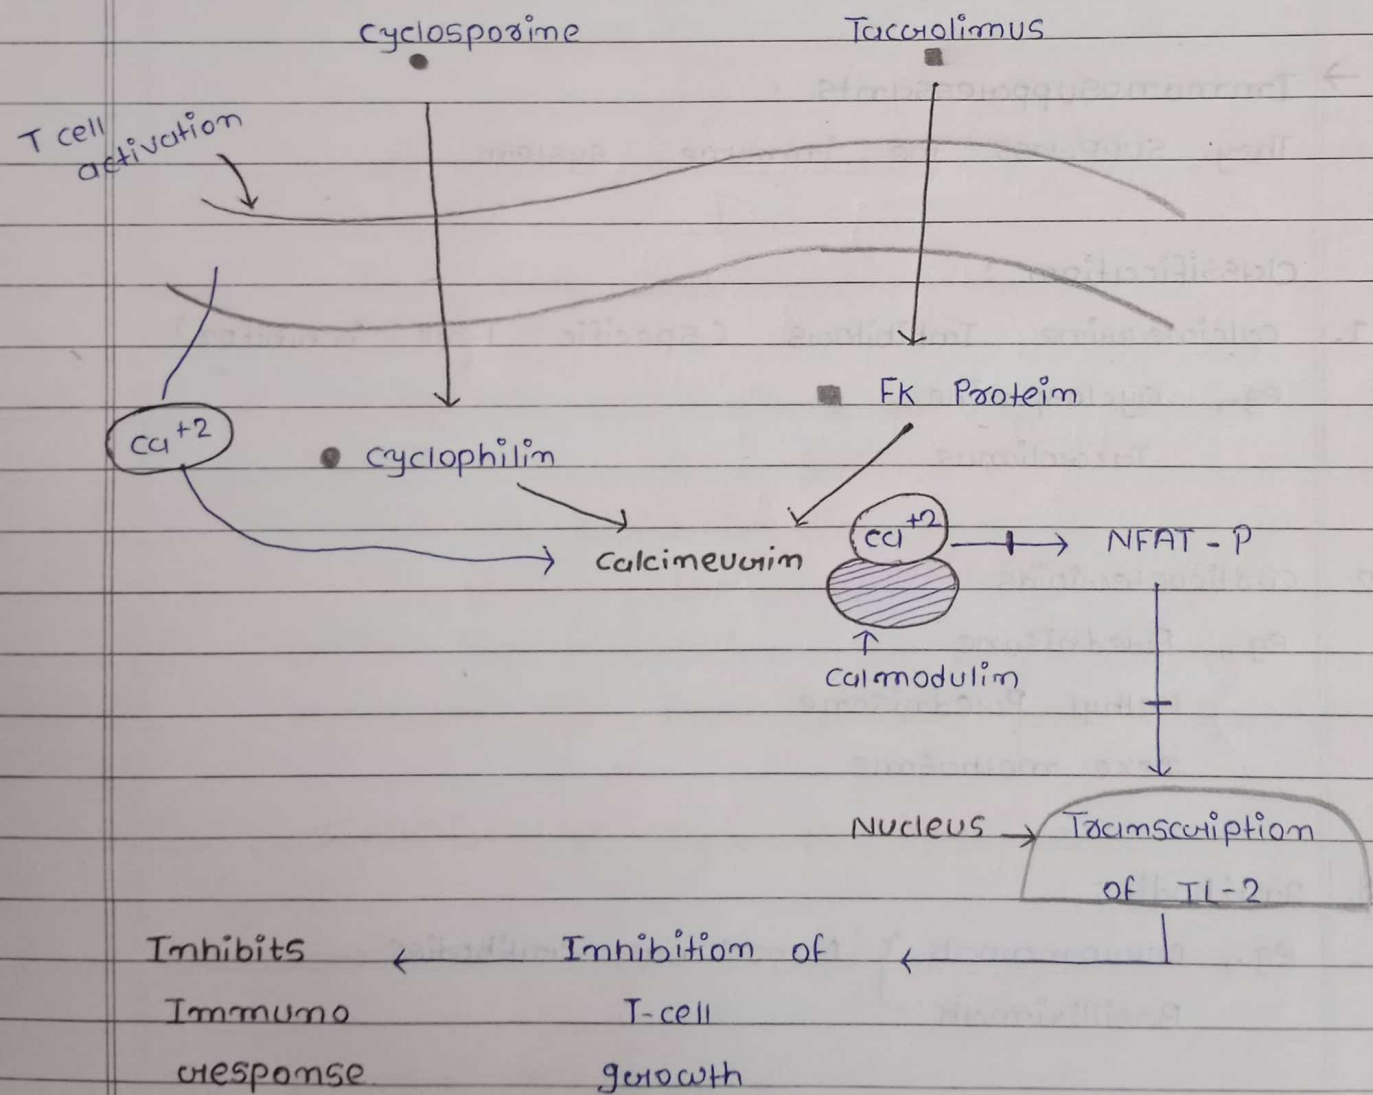 Cyclosporine
Tacrolimus
T cell
activation
FK Protein
Ca+2
Cyclophilin
Ca+2
NFAT - P
Calcineurin
Calmodulin
Nucleus
Transcription
of IL-2
Inhibits
Immuno
response
Inhibition of
T-cell
growth